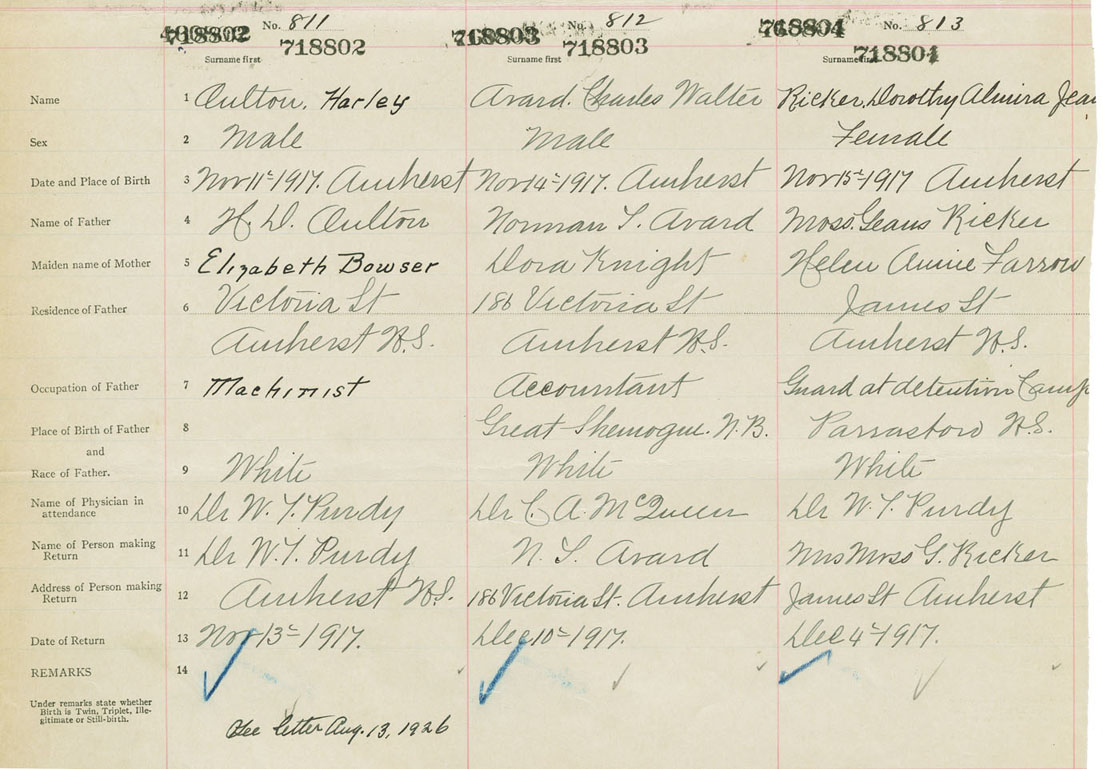 No. 811 No. 812 No. 813
718802 718803 718804
718802 718803 718804
Surname first Surname first Surname first
Name 1 Oulton, Harley Avard. Charles Walter Ricker, Dorothy Almira Jean
Sex 2 Male Male Female
Date and Place of Birth 3 Nov 11th 1917. Amherst Nov 14th 1917. Amherst Nov 15th 1917 Amherst
Name of Father 4 H. D. Oulton Norman S. Avard Moss Geans Ricker
Maiden name of Mother 5 Elizabeth Bowser Dora Knight Helen Annie Farrow
Residence of Father 6 Victoria St 186 Victoria St James St
Amherst N.S. Amherst N.S. Amherst N.S.
Occupation of Father 7 Machinist Accountant Guard at detention Camp
Place of Birth of Father 8 Great Shemogue. N.B. Parrsboro N.S.
and
Race of Father. 9 White White White
Name of Physician in
attendance 10 Dr W. T. Purdy Dr C. A. McQueen Dr W. T. Purdy
Name of Person making
Return 11 Dr W. T. Purdy N. S. Avard Mrs Moss G. Ricker
Address of Person making
Return 12 Amherst N.S. 186 Victoria St. Amherst James St Amherst
Date of Return 13 Nov 13th 1917. Dec 10th 1917. Dec 4th 1917.
REMARKS 14
Under remarks state whether
Birth is Twin, Triplet, Ille-
gitimate or Still-birth.
See letter Aug. 13, 1926